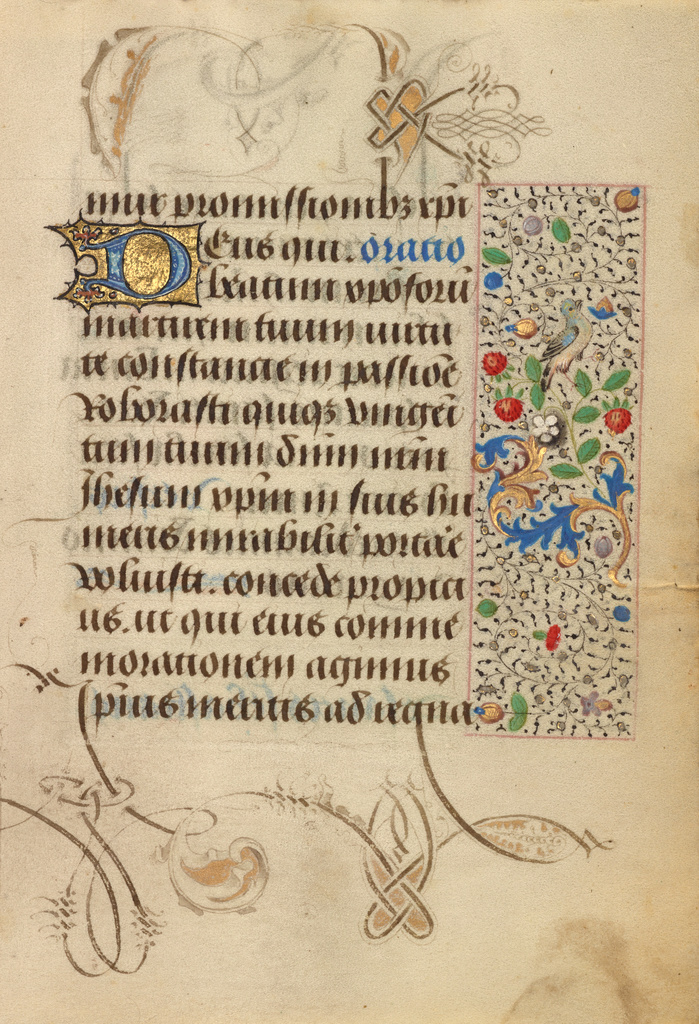 mur promissionibꝫ xp̄i
Deus qui . oratio
beatum xp̄oforū
martirem tuum uirtu
te constancie in passiōe
roborasti quiqꝫ vnigeī
tum tuum dn̄m nr̄m
Jhesum xp̄m in suis hu
meris mirabilit' portare
voluisti . concede propici
us . ut qui eius comme
morationem agimus
ip̄ius meritis ad regna